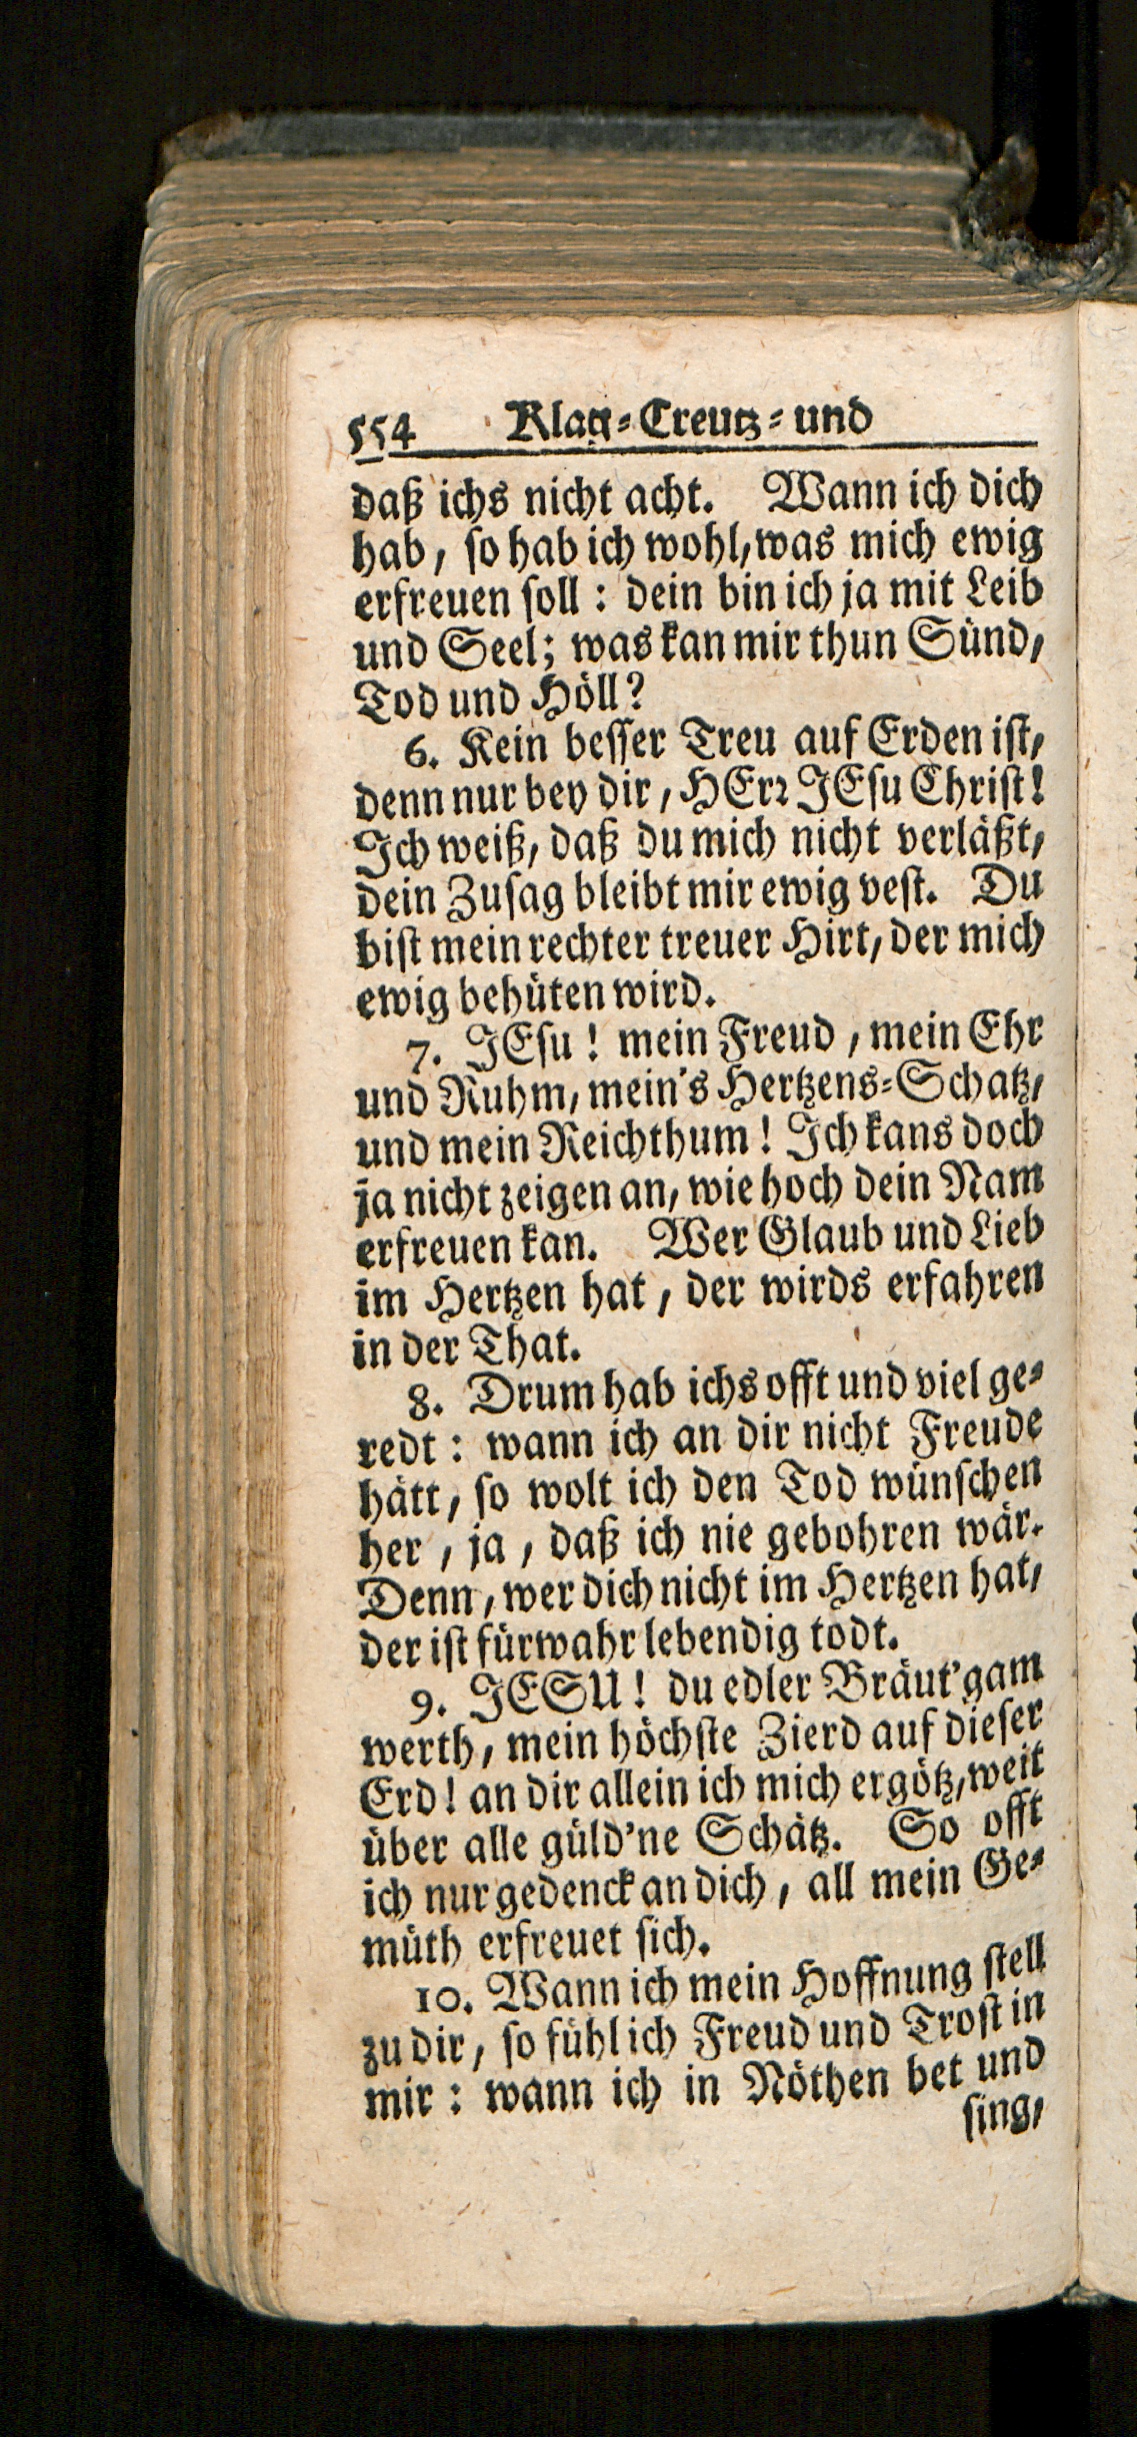 554 Klag-Creutz-und
daß ichs nicht acht. Wann ich dich
hab, so hab ich wohl, was mich ewig
erfreuen soll: dein bin ich ja mit Leib
und Seel; was kan mir thun Sünd,
Tod und Höll?
6. Kein besser Treu auf Erden ist,
denn nur bey dir, HErr JEsu Christ!
Ich weiß, daß du mich nicht verläßt,
dein Zusag bleibt mir ewig vest. Du
bist mein rechter treuer Hirt, der mich
ewig behüten wird.
7. JEsu! mein Freud, mein Ehr
und Ruhm, mein's Hertzens-Schatz,
und mein Reichthum! Ich kans doch
ja nicht zeigen an, wie hoch dein Nam
erfreuen kan. Wer Glaub und Lieb
im Hertzen hat, der wirds erfahren
in der That.
8. Drum hab ichs offt und viel ge-
redt: wann ich an dir nicht Freude
hätt, so wolt ich den Tod wünschen
her, ja, daß ich nie gebohren wär.
Denn, wer dich nicht im Hertzen hat,
der ist fürwahr lebendig todt.
9. JESU! du edler Bräut'gam
werth, mein höchste Zierd auf dieser
Erd! an dir allein ich mich ergötz, weit
über alle güld'ne Schätz. So offt
ich nur gedenck an dich, all mein Ge-
müth erfreuet sich.
10. Wann ich mein Hoffnung stell
zu dir, so fühl ich Freud und Trost in
mir: wann ich in Nöthen bet und
sing,